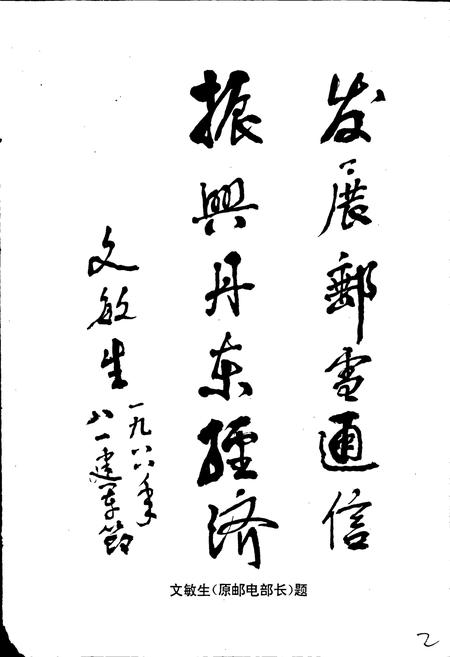 发展郵電通信
振興丹东經济
文敏生
一九八六年
八一建军節
文敏生(原邮电部长)题
2